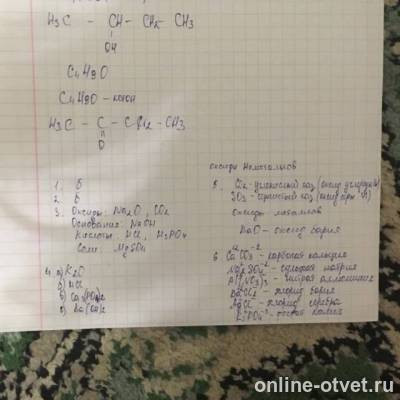 H₃C - CH - CH₂ - CH₃
OH
C₄H₉O
C₄H₉O -
H₃C - C - CH₂ - CH₃
O
1. б
2. в
3. Оксиды: Na₂O, CO₂
Основания: NaOH
Кислоты: HCl, H₃PO₄
Соли: MgSO₄
4. а) K₂O
б) HCl
в) Ca₃(PO₄)₂
г)
оксиды неметаллов
5. CO₂ - углекислый газ (оксид углерода IV)
SO₂ - сернистый газ (оксид серы VI)
оксиды металлов
BaO - оксид бария
6. CaCO₃ - карбонат кальция
Na₂SO₄ - сульфат натрия
Al(NO₃)₃ - нитрат алюминия
BaCl₂ - хлорид бария
AgCl - хлорид серебра
K₃PO₄ - фосфат калия
online-otvet.ru